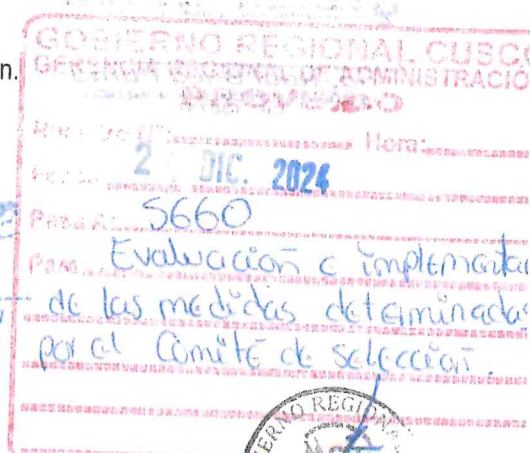 n.
GOBIERNO REGIONAL CUSCO
GERENCIA REGIONAL DE ADMINISTRACIÓ
PROVEIDO
Hora:
2 DIC. 2024
Pasa A: 5660
Para: Evaluación e implementa
de las medidas determinadas
por el Comité de selección.
ERNO REGIONA